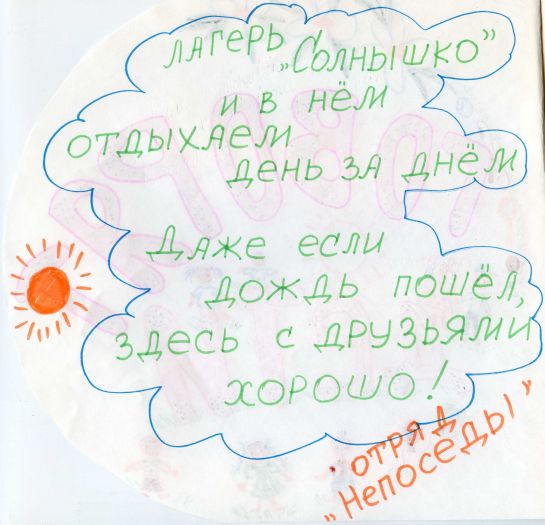 ЛАГЕРЬ „СОЛНЫШКО”
И В НЁМ
ОТДЫХАЕМ
ДЕНЬ ЗА ДНЁМ
ДАЖЕ ЕСЛИ
ДОЖДЬ ПОШЁЛ,
ЗДЕСЬ С ДРУЗЬЯМИ
ХОРОШО!
ОТРЯД
„НЕПОСЕДЫ”